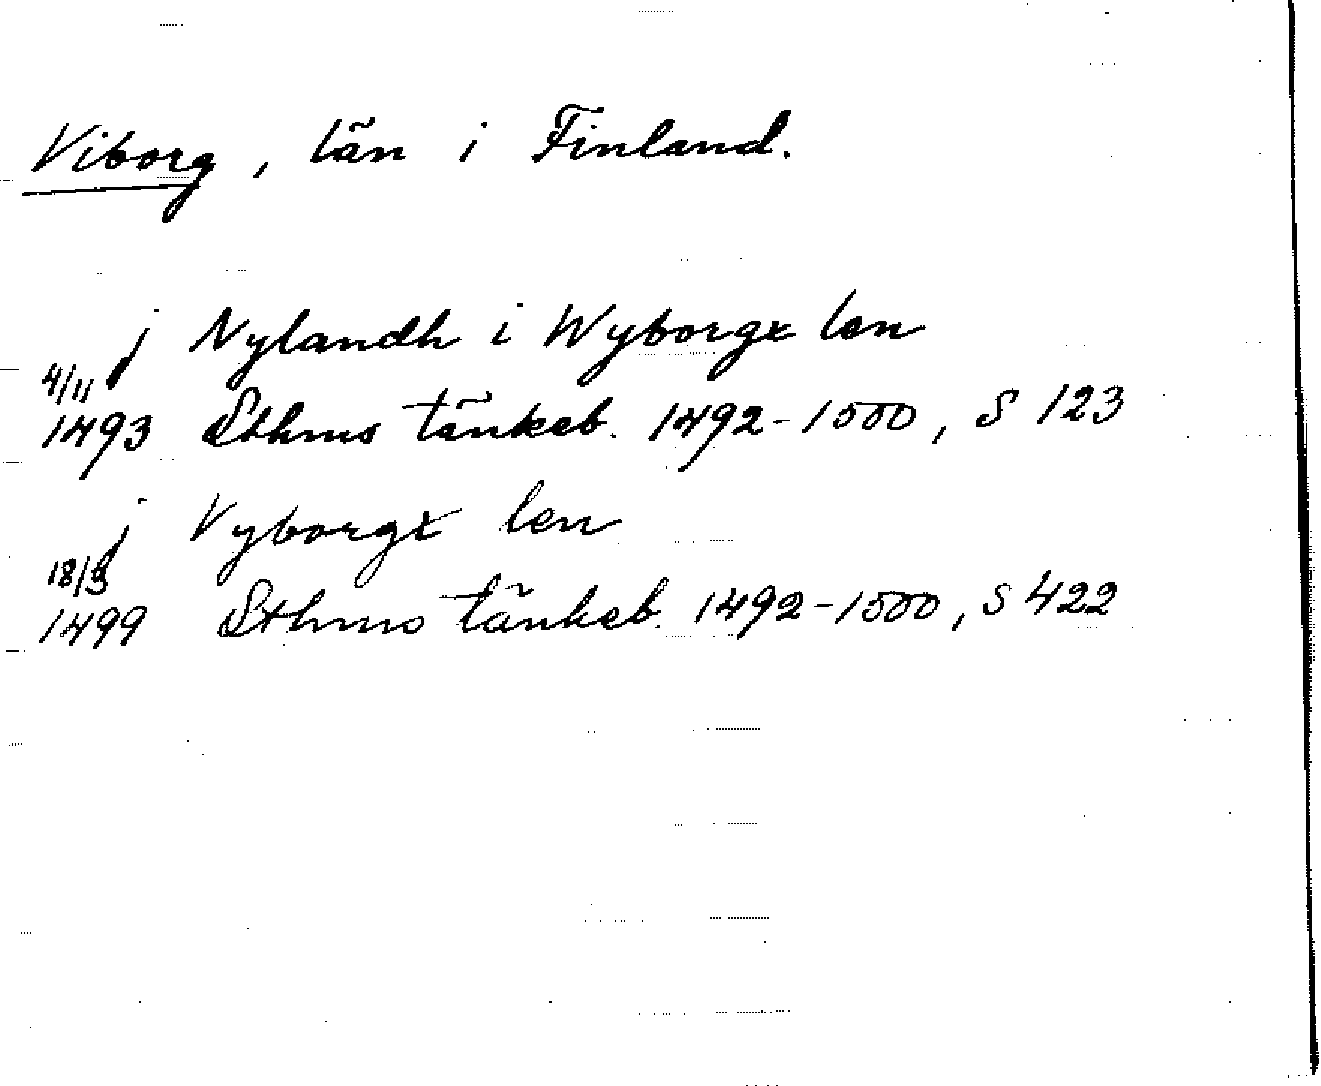 Viborg, län i Finland.
j Nylandh i Wyborgx len
4/11
1493 Sthms tänkeb. 1492-1500, S 123
j Vyborgx len
18/3
1499 Sthms tänkeb. 1492-1500, S 422